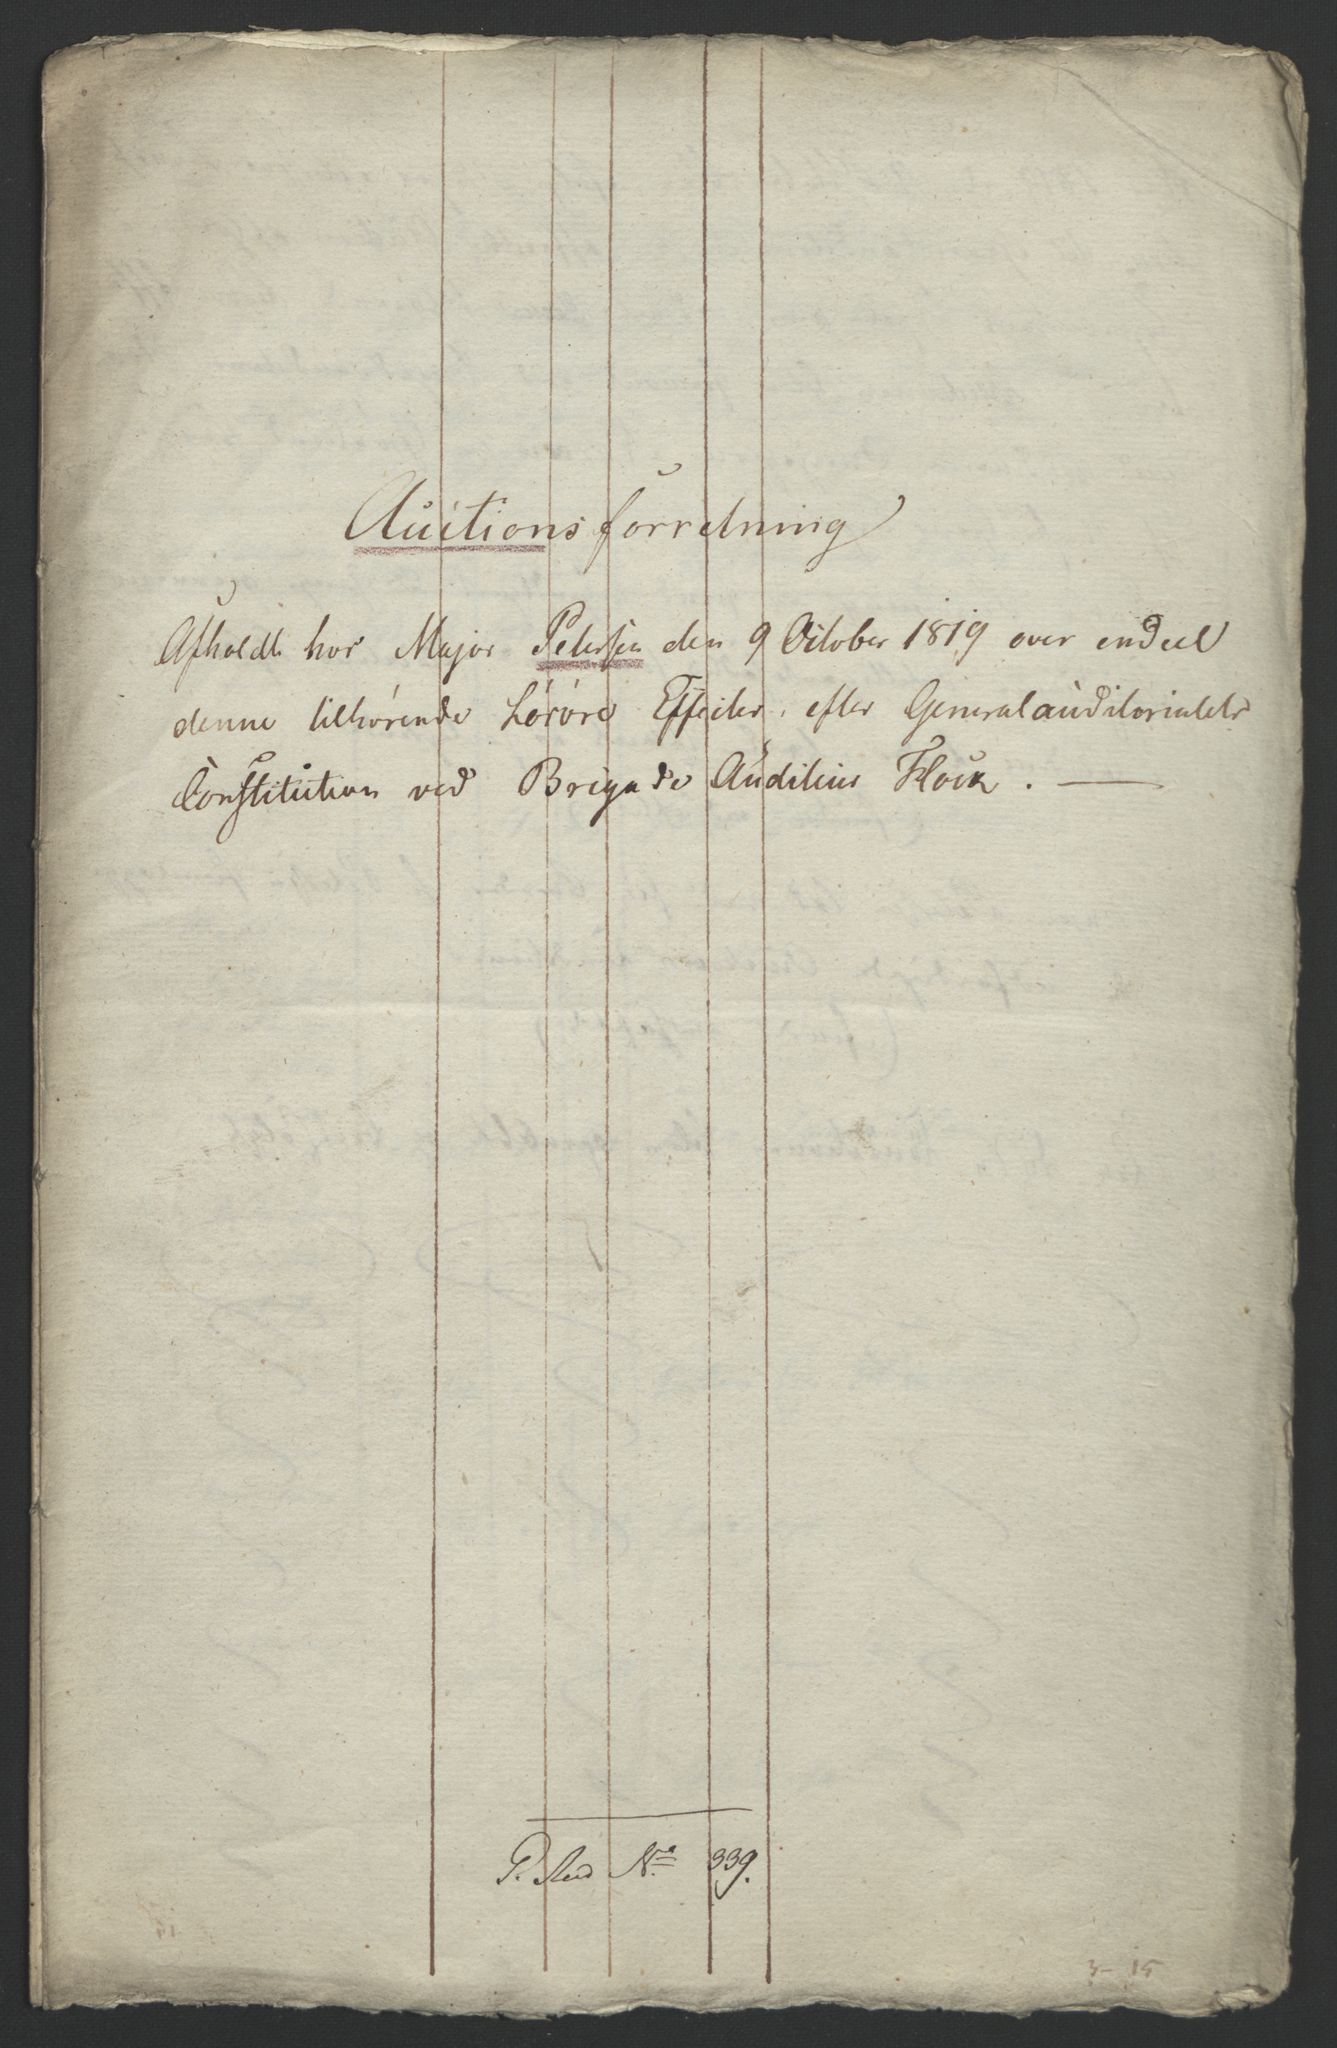 Auctionsforretning
Afholdt hos Major Petersen den 9 October 1819 over endeel
denne tilhørende Løsøre Effecter, efter Generalauditoriatets
Constitution ved Brigade Auditeur Flock. —
P. No 339.
3- 15